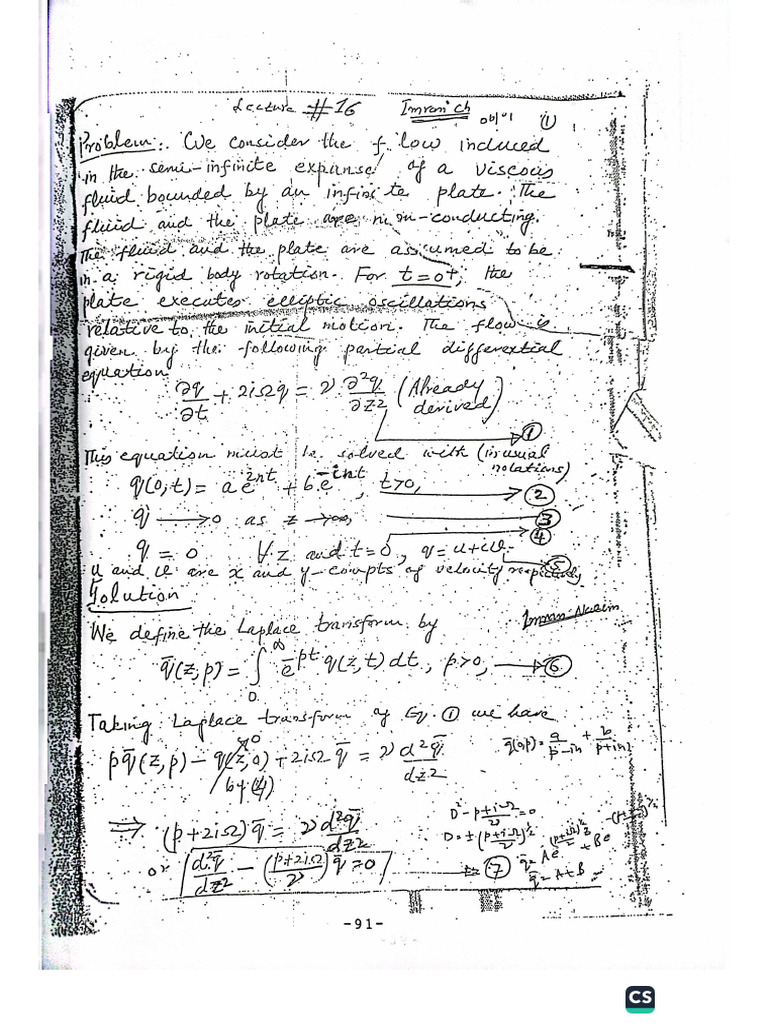 Lecture # 16 Imran Ch
(1)
Problem:. We consider the flow induced
in the semi-infinite expanse of a viscous
fluid bounded by an infinite plate. The
fluid and the plate are non-conducting.
The fluid and the plate are assumed to be
in a rigid body rotation. For t=0+, the
plate executes elliptic oscillations
relative to the initial motion. The flow is
given by the following partial differential
equation
∂q/∂t + 2iΩq = ν ∂²q/∂z² (Already derived) → (1)
This equation must be solved with (in usual notations)
q(0,t) = a e^{int} + b e^{-int}, t>0, → (2)
q → 0 as z → ∞, (3)
→ (4)
q = 0 ∀ z and t=0, q = u+iv (5)
u and v are x and y-compts of velocity respectively
Solution
Imran Naeem
We define the Laplace transform by
q̄(z,p) = ∫₀^∞ e^{-pt} q(z,t) dt, p>0, → (6)
Taking Laplace transform of Eq. (1) we have
p q̄(z,p) - q(z,0) + 2iΩ q̄ = ν d²q̄/dz²
0
by (4)
q̄(0,p) = a/(p-in) + b/(p+in)
⇒ (p+2iΩ) q̄ = ν d²q̄/dz²
or d²q̄/dz² - ((p+2iΩ)/ν) q̄ = 0 → (7)
D² - (p+iΩ)/ν = 0
D = ± ((p+iΩ)/ν)^{1/2}
q̄ = A+B
-91-
CS